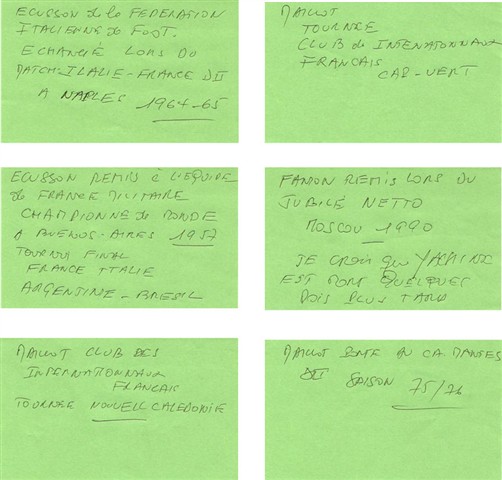 ECUSSON de la FEDERATION
ITALIENNE de FOOT.
ECHANGÉ LORS DU
MATCH-ITALIE-FRANCE DII
A NAPLES 1964-65
MAILLOT
TOURNEE
CLUB de INTENATIONNAUX
FRANCAIS
CAP-VERT
ECUSSON REMIS à L'EQUIPE
de FRANCE MILITAIRE
CHAMPIONNE du MONDE
A BUENOS-AIRES 1957
TOURNOI FINAL
FRANCE ITALIE
ARGENTINE-BRESIL
FANION REMIS LORS DU
JUBILÉ NETTO
MOSCOU 1990
JE CROIS que YACHINE
EST MORT QUELQUES
MOIS PLUS TARD
MAILLOT CLUB DES
INTERNATIONNAUX
FRANCAIS
TOURNEE NOUVELL CALEDONIE
MAILLOT PORTE AU CA MANTES
SAISON 75/76